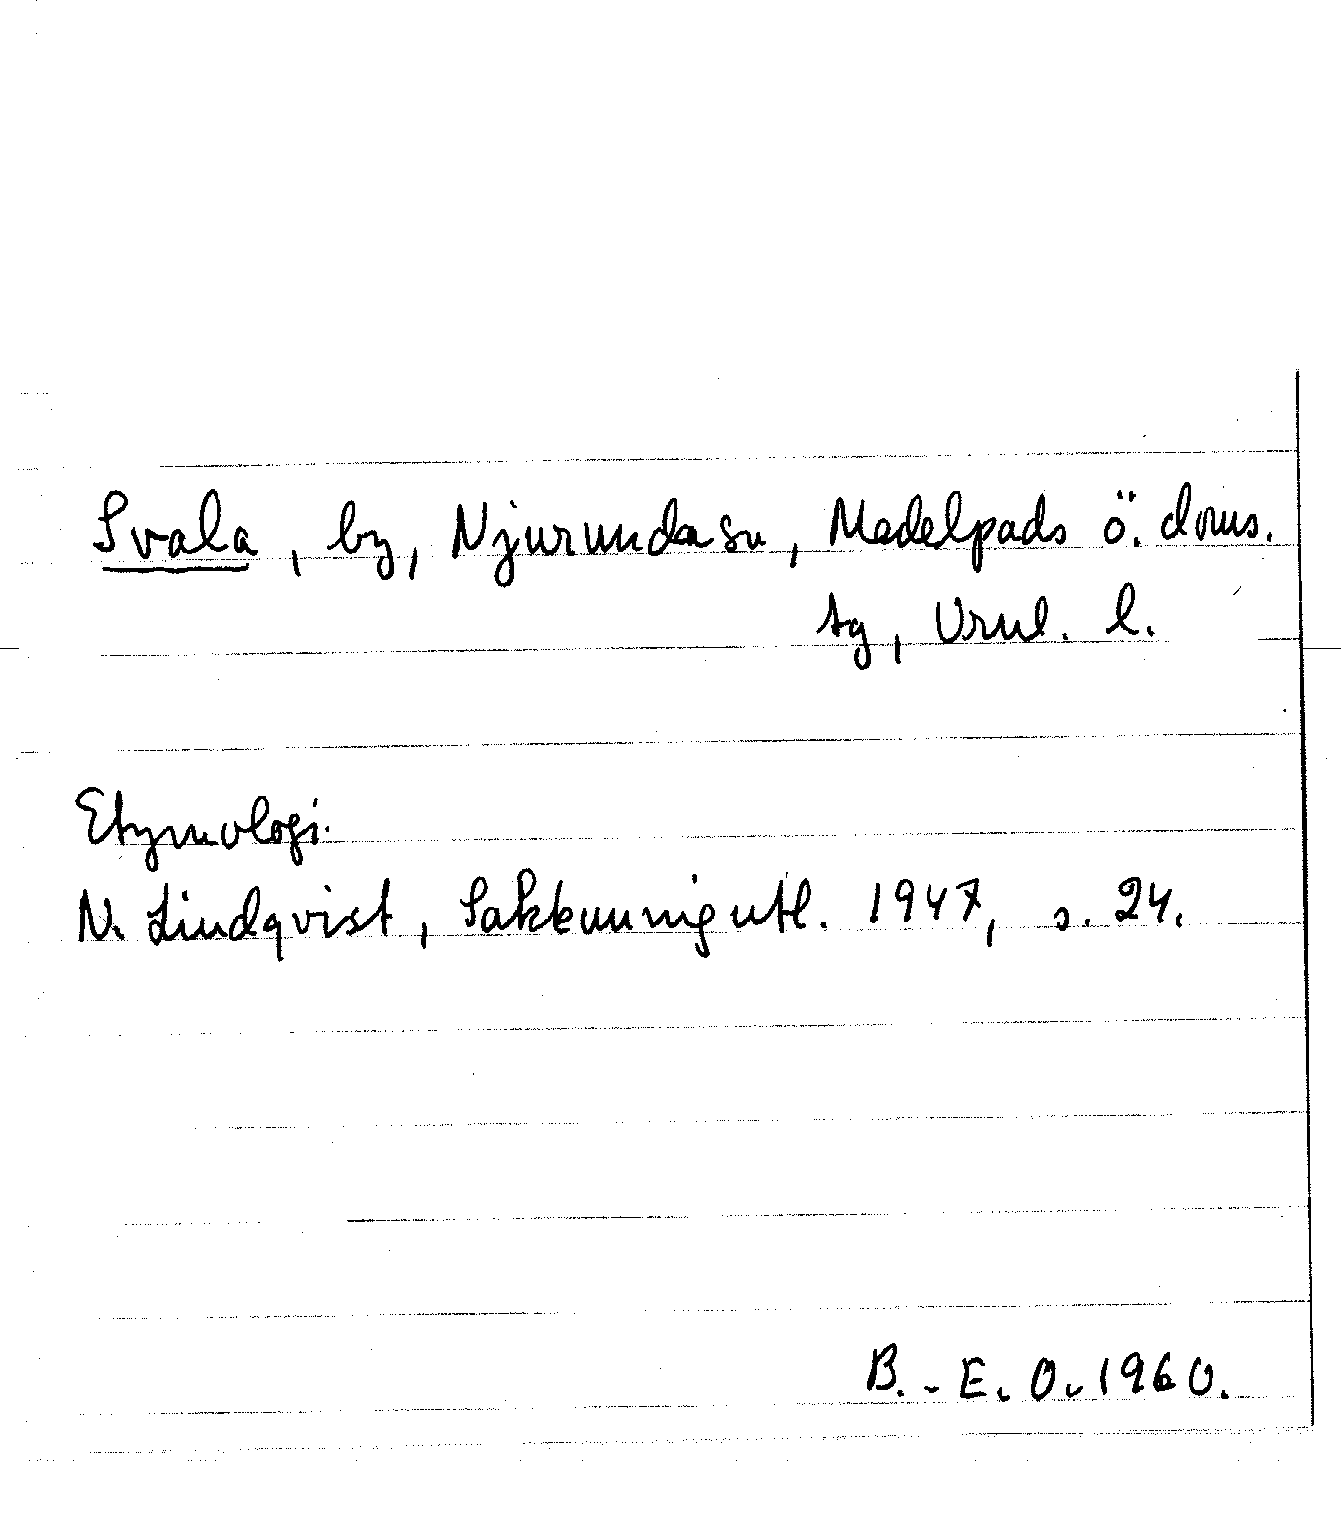 Svala, by, Njurunda sn, Medelpads ö. doms.
sg, Vrnl. l.
Etymologi.
N. Lindqvist, Sakkunnigutl. 1947, s. 24.
B.-E. O. 1960.